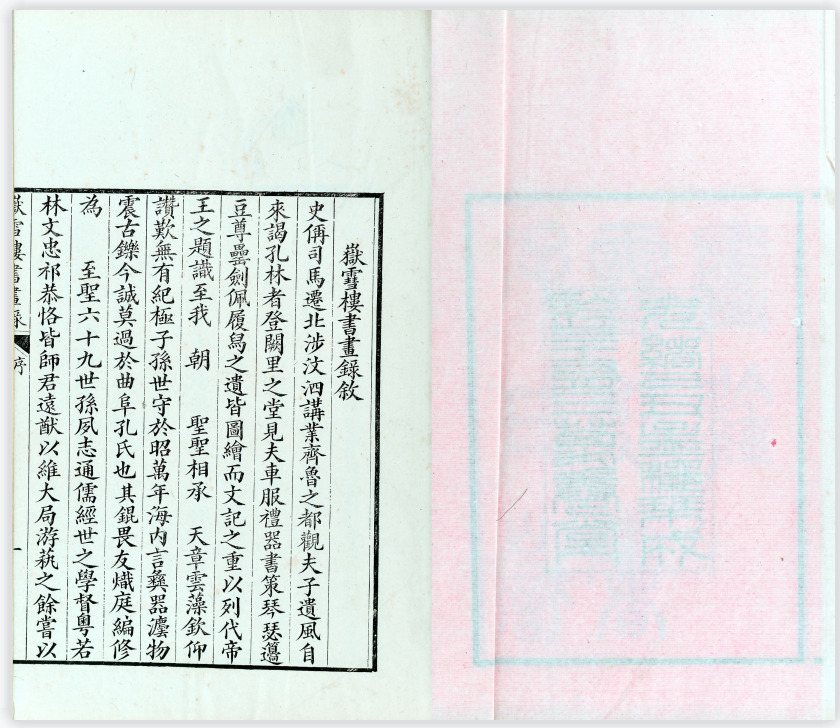 嶽雪樓書畫錄敘
史偁司馬遷北涉汶泗講業齊魯之都觀夫子遺風自
來謁孔林者登闕里之堂見夫車服禮器書策琴瑟簠
豆尊罍劍佩履舄之遺皆圖繪而文記之重以列代帝
王之題識至我 朝 聖聖相承 天章雲藻欽仰
讚歎無有紀極子孫世守於昭萬年海内言彝器灋物
震古鑠今誠莫過於曲阜孔氏也其錕畏友熾庭編修
為 至聖六十九世孫夙志通儒經世之學督粵若
林文忠祁恭恪皆師君遠猷以維大局游蓺之餘嘗以
嶽雪樓書畫錄 序 一